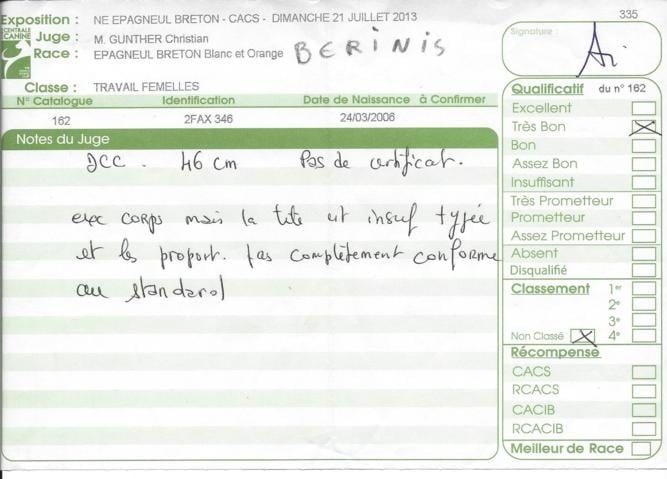 335
Exposition : NE EPAGNEUL BRETON - CACS - DIMANCHE 21 JUILLET 2013
CENTRALE CANINE
Juge : M. GUNTHER Christian
Race : EPAGNEUL BRETON Blanc et Orange BERINIS
Classe : TRAVAIL FEMELLES
N° Catalogue Identification Date de Naissance à Confirmer
162 2FAX 346 24/03/2006
Notes du Juge
JCC. 46 cm Pas de certificat.
exc corps mais la tête est insuf typée
et les proport. pas complètement conforme
au standard
Signature :
Qualificatif du n° 162
Excellent
Très Bon
Bon
Assez Bon
Insuffisant
Très Prometteur
Prometteur
Assez Prometteur
Absent
Disqualifié
Classement 1er
2e
3e
Non Classé 4e
Récompense
CACS
RCACS
CACIB
RCACIB
Meilleur de Race